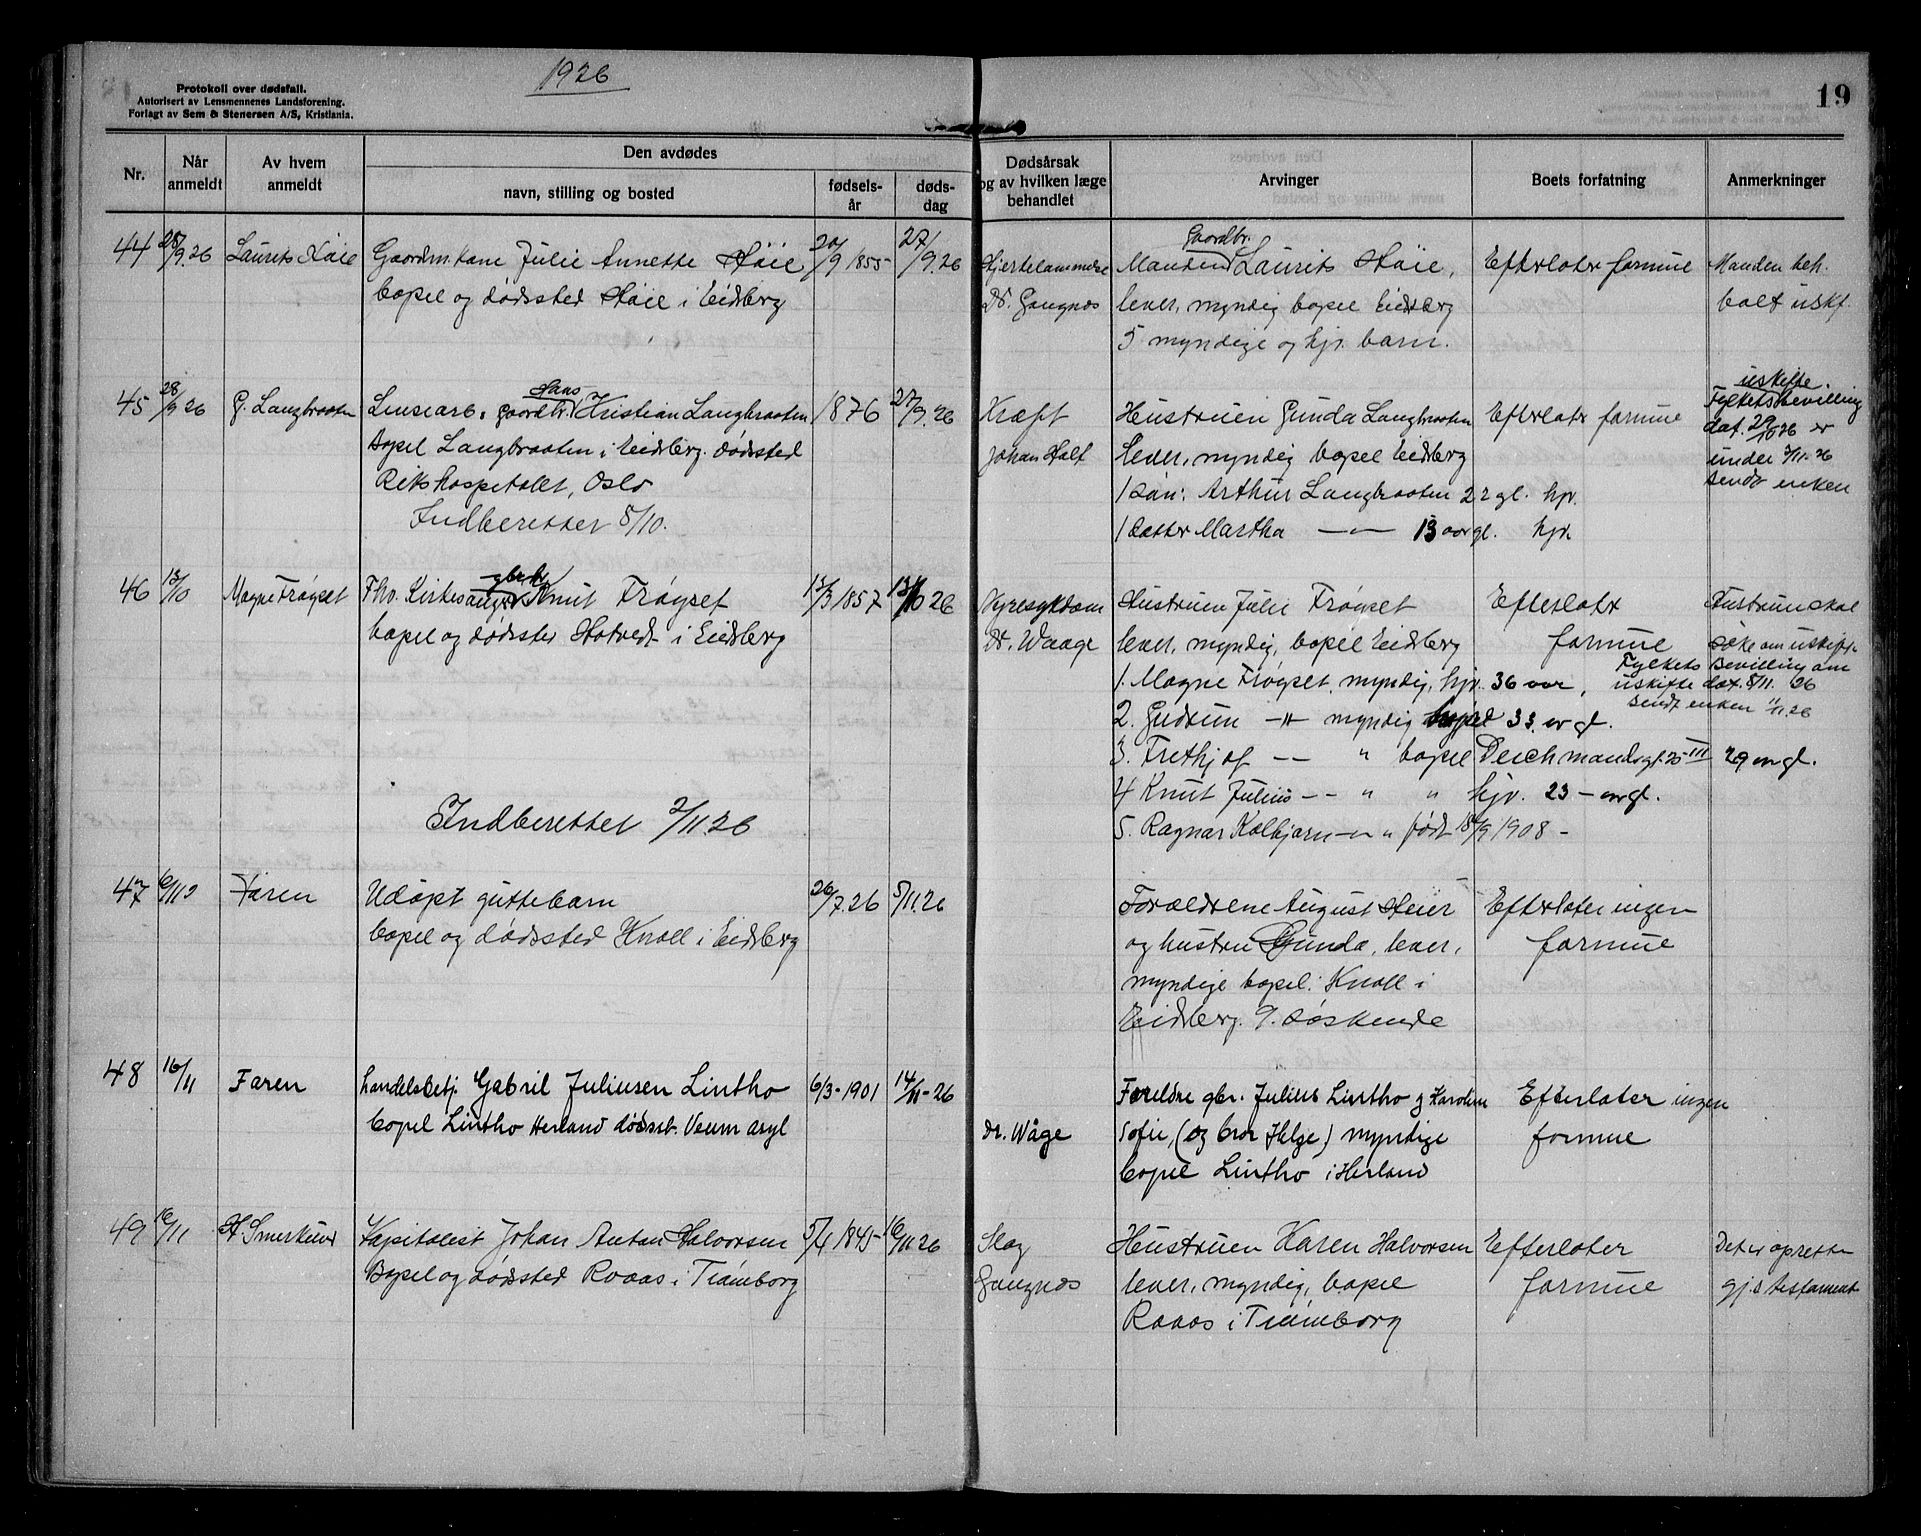 1926
Protokoll over dødsfall.
Autorisert av Lensmennenes Landsforening.
Forlagt av Sem & Stenersen A/S, Kristiania.
19
Nr.
Når anmeldt
Av hvem anmeldt
Den avdødes
navn, stilling og bosted
fødselsår
dødsdag
Dødsårsak og av hvilken læge behandlet
Arvinger
Boets forfatning
Anmerkninger
44 28/9.26 Laurits Høie Gaardm.kone Julie Annette Høie 20/9 1855 27/9.26
bopel og dødssted Høie i Eidsberg
Hjertelammelse
Dr. Gangnæs
Gaardbr.
Manden Laurits Høie,
lever, myndig bopel Eidsberg
5 myndige og hjv. barn.
Efterlater formue
Manden beh.
bolt uskf.
45 28/9 26 G. Langbraaten Linsearb. & gaardbr. Hans Kristian Langbraaten 1876 27/9.26
Bopel Langbraaten i Eidsberg. dødssted
Rikshospitalet, Oslo
Indberettet 5/10.
Kræft
Johan Holf
Hustruen Gunda Langbraaten
lever, myndig bopel Eidsberg
1 søn: Arthur Langbraaten 22 gl. hjv.
1 datter Martha — " — 13 aar gl. hjv.
Efterlater formue
uskifte.
Fylketsbevilling
dat. 29/10 26 er
under 2/11.26
sendt enken
46 13/10 Magne Frøyset Fhv. Kirkesanger gbr. Knut Frøyset 13/3 1857 13/10 26
bopel og dødssted Hotvedt i Eidsberg
Indberettet 2/11.26
Nyresykdom
Dr. Waage
Hustruen Julie Frøyset
lever, myndig, bopel Eidsberg
1. Magne Frøyset, myndig, hjv. 36 aar,
2. Gudrun —"— myndig bopel 33. aar gl.
3. Frethjof — — " bopel Deichmandsgt. 25 III 29 aar gl.
4 Knut Julius — — " " hjv. 23 — aar gl.
5. Ragnar Kolbjørn —"— " født 18/9 1908 -
Efterlater
formue
Hustruen skal
søke om uskifte.
Fylkets Bevilling om
uskifte dat. 8/11. 26
sendt enken 11/11.26
47 6/11 Faren Udøpt guttebarn 26/7.26 5/11.26
bopel og dødssted Knoll i Eidsberg
Forældrene August Heier
og hustru Gunda, lever,
myndige bopel: Knoll i
Eidsberg. 9. søskende
Efterlater ingen
formue
48 16/11 Faren Handelsbetj. Gabril Juliusen Lintho 6/3-1901 14/11-26
bopel Lintho Herland dødsst. Veum asyl
Dr. Wåge
Foreldre gbr. Julius Lintho og Karoline
Sofie, (og bror Helge) myndige
bopel Lintho i Herland
Efterlater ingen
formue
49 16/11 H. Smerkerud Kapitalist Johan Anton Halvorsen 5/4 1845 16/11 26
Bopel og dødssted Raaas i Trømborg
Slag
Gangnæs
Hustruen Karen Halvorsen
lever, myndig, bopel
Raaas i Trømborg
Efterlater
formue
Det er oprettet
gj.s testament